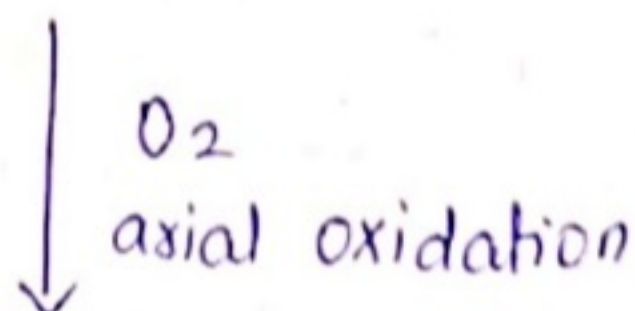 O2
axial oxidation